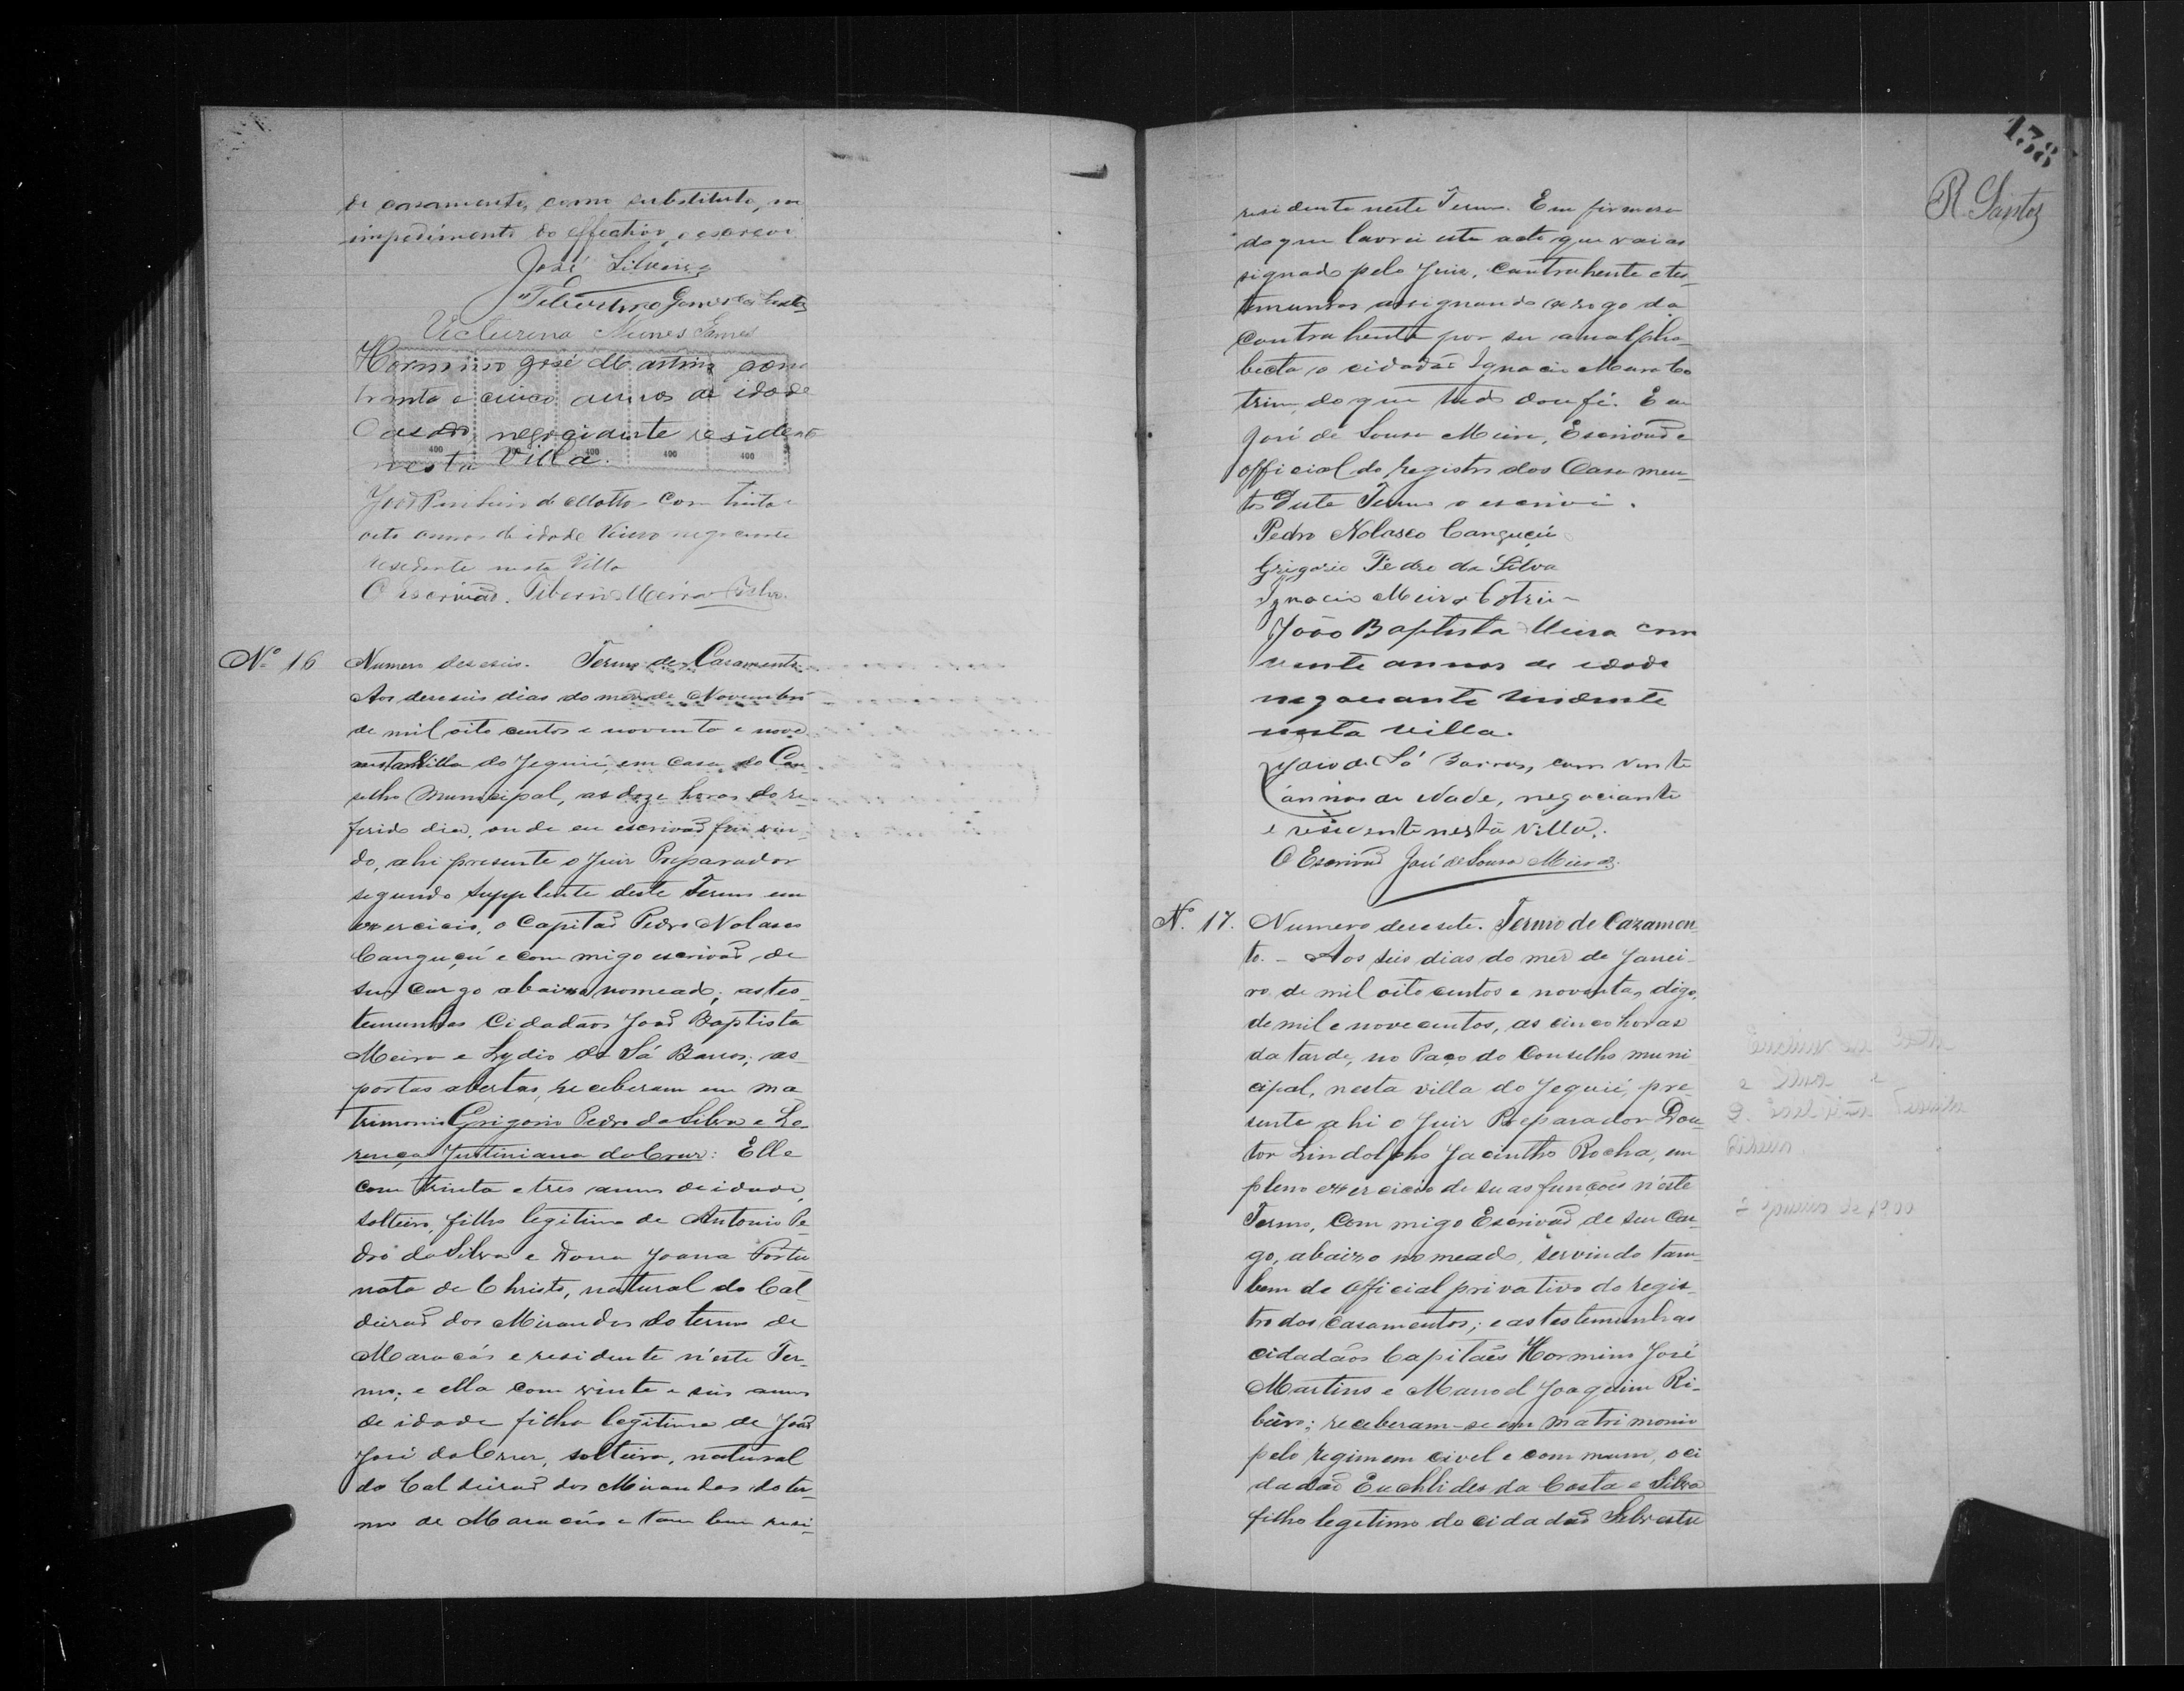 de casamento, como substituto, no
impedimento do effectivo, o escrevi.
José Silveira
Victurina Nunes Gomes
Hormino José Martins com
trinta e cinco annos de idade
Casado, negociante residente
nesta Villa.
400 400 400 400 400
com trinta e
oito annos de idade Viuvo negociante
residente nesta Villa
O Escrivão. Tiberio Meira e Silva.
Nº 16 Numero deseseis. Termo de Casamento
Aos deseseis dias do mez de Novembro
de mil oito centos e noventa e nove
nesta Villa do Jequié, em casa do Con-
selho Municipal, as doze horas do re-
ferido dia, onde eu escrivão fui vin-
do, ahi presente o Juiz Preparador
segundo Supplente deste Termo em
exercicio, o Capitão Pedro Nolasco
Canguçú e com migo escrivão de
seu cargo abaixo nomeado; as tes-
temunhas Cidadãos João Baptista
Meira e Lydio de Sá Barros; as
portas abertas, receberam em ma-
trimonio Grigorio Pedro da Silva e Lo-
rença Justiniana da Cruz: Elle
com trinta e tres annos de idade,
solteiro, filho legitimo de Antonio Pe-
dro da Silva e Dona Joana Fortu-
nata de Christo, natural do Cal-
deirão dos Mirandas do termo de
Maracás e residente n'este Ter-
mo; e ella com vinte e seis annos
de idade filha legitima de João
José da Cruz, solteira, natural
do Caldeirão dos Mirandas do ter-
mo de Maracás e tam bem resi-
138
R. Santos
residente neste Termo. E em firmesa
do que lavrei este acto que vai as
signado pelo Juiz, contrahente e tes-
temunhas assignando a rogo da
contrahente por ser analpha-
beta o cidadão Ignacio Meira Co
trim, do que tudo dou fé. E eu
José de Sousa Meira, Escrivão e
official do registro dos Casamen-
tos deste Termo o escrevi.
Pedro Nolasco Canguçú
Grigorio Pedro da Silva
Ignacio Meira Cotrim
João Baptista Meira com
vinte annos de idade
negociante residente
nesta villa.
de Sá Barros, com vinte
annos de idade, negociante
e residente nesta villa.
O Escrivão José de Sousa Meira.
Nº 17. Numero desesete. Termo de Cazamen-
to. - Aos seis dias do mez de Janei-
ro de mil oito centos e noventa, digo,
de mil e nove centos, as cinco horas
da tarde, no Paço do Conselho muni
cipal, nesta villa do Jequié, pre-
sente ahi o Juiz Preparador Dou
tor Lindolpho Jacintho Rocha, em
pleno exercicio de suas funções n'este
Termo, Com migo Escrivão de seu car-
go, abaixo nomeado, servindo tam-
bem de Official privativo do regis-
tro dos casamentos; e as testemunhas
cidadãos Capitães Hormino José
Martins e Manoel Joaquim Ri-
beiro; receberam-se em matrimonio
pelo regimem civel e commum, o ci
dadão Euchlides da Costa e Silva
filho legitimo do cidadão Silvestre